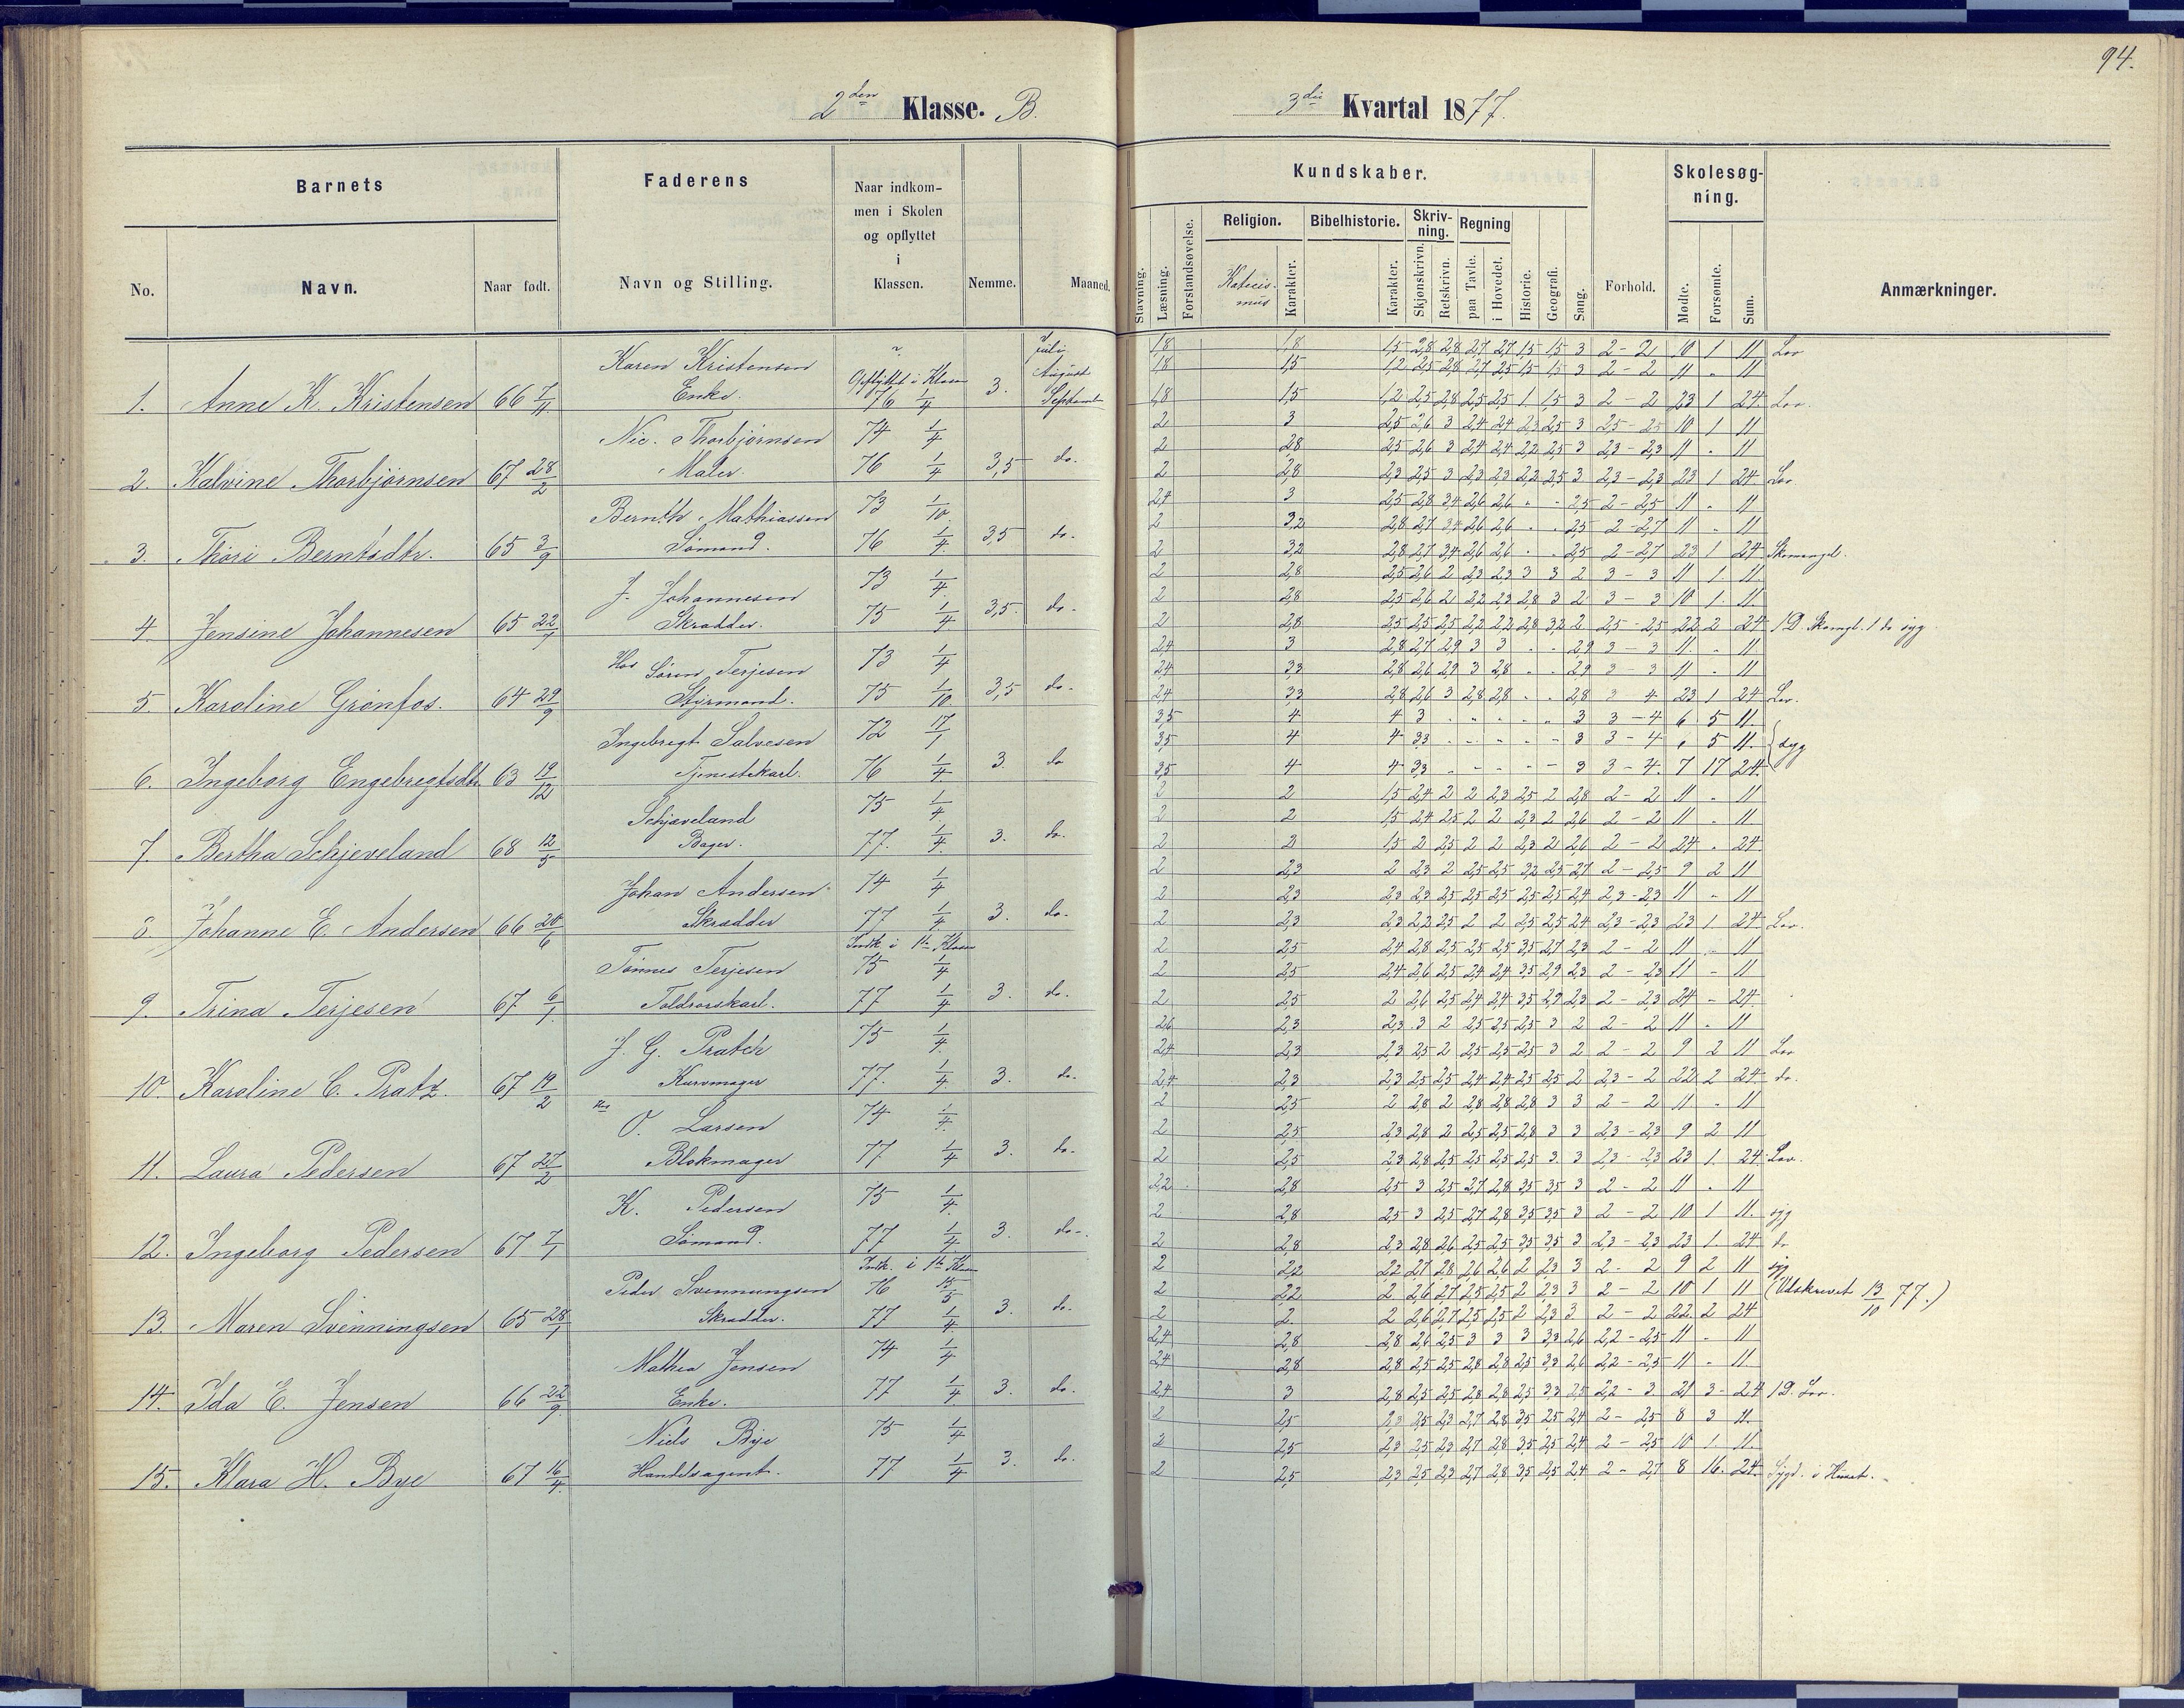 94.
2den Klasse. B.
3die Kvartal 1877.
Barnets
Faderens
Naar indkom-
men i Skolen
og opflyttet
i
Klassen.
Nemme.
Maaned.
No.
Navn.
Naar født.
Navn og Stilling.
Kundskaber.
Skolesøg-
ning.
Stavning.
Læsning.
Forstandsøvelse.
Religion.
Bibelhistorie.
Skriv-
ning.
Regning
Katecis-
mus
Karakter.
Karakter.
Skjønskrivn.
Retskrivn.
paa Tavle.
i Hovedet.
Historie.
Geografi.
Sang.
Forhold.
Mødte.
Forsømte.
Sum.
Anmærkninger.
Karen Kristensen Juli
Opflyttet i Klassen August
1. Anne K. Kristensen 66 7/11 Enke. 76 1/4 3. Septemb
Nic. Thorbjørnsen 74 1/4
2. Kalvine Thorbjørnsen 67 28/2 Maler. 76 1/4 3,5 do.
Bernth Mathiassen 73 1/10
3. Thori Berntsdtr. 65 3/9 Sømand. 76 1/4 3,5 do.
J. Johannesen 73 1/4
4. Jensine Johannesen 65 22/1 Skrædder. 75 1/4 3,5. do.
Hos Søren Terjesen 73 1/4
5. Karoline Grønfos. 64 29/9 Styrmand. 75 1/10 3,5 do.
Ingebregt Salvesen 72 17/1
6. Ingeborg Engebregtsdtr. 63 19/12 Tjenestekarl. 76 1/4 3. do
Schjæveland 75 1/4
7. Bertha Schjeveland 68 12/5 Bager. 77. 1/4 3. do.
Johan Andersen 74 1/4
8. Johanne E. Andersen 66 20/6 Skrædder 77 1/4 3. do.
Indk. i 1te Klasse
Tønnes Terjesen 75 1/4
9. Trina Terjesen 67 6/1 Toldrorskarl. 77 1/4 3. do.
J. G. Pratch 75 1/4
10. Karoline C. Pratz. 67 19/2 Kurvmager 77. 1/4 3. do.
Hos O. Larsen 74 1/4
11. Laura Pedersen 67 27/2 Blokmager 77 1/4 3. do.
K. Pedersen 75 1/4
12. Ingeborg Pedersen 67 7/1 Sømand. 77 1/4 3. do.
Indk. i 1te Klasse
Peder Svennungsen 76 15/5
13. Maren Svenningsen 65 28/1 Skrædder. 77 1/4 3. do.
Mathea Jensen 74 1/4
14. Ida E. Jensen 66 22/9 Enke. 77 1/4 3. do.
Niels Bye 75 1/4
15. Klara H. Bye 67 16/4 Handelsagent. 77 1/4 3. do.
1,8 1,8 1,5 2,8 2,8 2,7 2,7 1,5 1,5 3 2-2 10 1 11 Lov
1,8 1,5 1,2 2,5 2,8 2,7 2,5 1,5 1,5 3 2-2 11 " 11
1,8 1,5 1,2 2,5 2,8 2,5 2,5 1 1,5 3 2-2 23 1 24 Lov.
2 3 2,5 2,6 3 2,4 2,4 2,3 2,5 3 2,5-2,5 10 1 11
2 2,8 2,5 2,6 3 2,4 2,4 2,2 2,5 3 2,3-2,3 11 " 11
2 2,8 2,3 2,5 3 2,3 2,3 2,2 2,5 3 2,3-2,3 23 1 24 Lov
2,4 3 2,5 2,8 3,4 2,6 2,6 " " 2,5 2-2,5 11 " 11
2 3,2 2,8 2,7 3,4 2,6 2,6 " " 2,5 2-2,7 11 " 11
2 3,2 2,8 2,7 3,4 2,6 2,6 " " 2,5 2-2,7 23 1 24 Skomangel.
2 2,8 2,5 2,6 2 2,3 2,3 3 3 2 3-3 11 1. 11.
2 2,8 2,5 2,6 2 2,2 2,3 2,8 3 2 3-3 10 1. 11.
2 2,8 2,5 2,5 2,5 2,2 2,2 2,8 3,2 2 2,5-2,5 22 2 24 1 D. Skomgl. 1 do syg
2,4 3 2,8 2,7 2,9 3 3 " " 2,9 3-3 11 " 11
2,4 3,3 2,8 2,6 2,9 3 2,8 " " 2,9 3-3 11 " 11
2,4 3,3 2,8 2,6 3 2,8 2,8 " " 2,8 3-4 23 1 24 Lov.
3,5 4 4 3 " " " " " 3 3-4 6 5 11.
3,5 4 4 3,3 " " " " " 3 3-4 6 5 11. syg
3,5 4 4 3,3 " " " " " 3 3-4. 7 17 24.
2 2 1,5 2,4 2 2 2,3 2,5 2 2,8 2-2 11 " 11
2 2 1,5 2,4 2,5 2 2 2,3 2 2,6 2-2 11 " 11
2 2 1,5 2 2,5 2 2 2,3 2 2,6 2-2 24 " 24
2 2,3 2 2,3 2 2,5 2,5 3,2 2,5 2,7 2-2,5 9 2 11
2 2,3 2,3 2,3 2,5 2,5 2,5 2,5 2,5 2,4 2,3-2,3 11 " 11
2 2,3 2,3 2,2 2,5 2 2 2,5 2,5 2,4 2,3-2,3 23 1 24 Lov.
2 2,5 2,4 2,8 2,5 2,5 2,5 3,5 2,7 2,3 2-2 11 " 11
2 2,5 2,4 2,6 2,5 2,4 2,4 3,5 2,9 2,3 2-2,3 11 - 11
2 2,5 2 2,6 2,5 2,4 2,4 3,5 2,9 2,3 2-2,3 24 - 24
2,6 2,3 2,3 3 2 2,5 2,5 2,5 3 2 2-2 11 " 11
2,4 2,3 2,3 2,5 2 2,5 2,5 2,5 3 2 2-2 9 2 11 Lov
2,4 2,3 2,3 2,5 2,5 2,4 2,4 2,5 2,5 2 2,3-2 22 2 24 do.
2 2,5 2 2,8 2 2,8 2,8 2,8 3 3 2-2 11 " 11
2 2,5 2,3 2,8 2 2,5 2,5 2,8 3 3 2,3-2,3 9 2 11
2 2,5 2,3 2,8 2,5 2,5 2,5 2,5 3 3 2,3-2,3 23 1. 24 Lov.
2,2 2,8 2,5 3 2,5 2,7 2,8 3,5 3,5 3 2-2 11 " 11
2 2,8 2,5 3 2,5 2,7 2,8 3,5 3,5 3 2-2 10 1 11. syg
2 2,8 2,3 2,8 2,6 2,5 2,5 3,5 3,5 3 2,3-2,3 23 1. 24 do
2 2,2 2,2 2,7 2,8 2,6 2,6 2 2,3 3 2-2 9 2 11 syg
2 2,2 2 2,6 2,7 2,5 2,5 2 2,3 3 2-2 10 1 11 (Udskrevet 13/10 77.)
2 2. 2 2,6 2,7 2,5 2,5 2 2,3 3. 2-2 22 2 24
2,4 2,8 2,8 2,6 2,5 3 3 3 3,3 2,6 2,2-2,5 11 " 11
2,4 2,8 2,8 2,5 2,5 2,8 2,8 2,5 3,3 2,6 2,2-2,5 11 - 11
2,4 3 2,8 2,5 2,5 2,8 2,8 2,5 3,3 2,5 2,2-3 21 3- 24 1 D. Lov.
2 2,5 2,3 2,5 2,3 2,7 2,8 3,5 2,5 2,4 2-2,5 8 3 11.
2 2,5 2,3 2,5 2,3 2,7 2,8 3,5 2,5 2,4 2-2,5 10 1. 11.
2 2,5 2,3 2,5 2,3 2,7 2,8 3,5 2,5 2,4 2-2,7 8 16. 24. Sygd. i Huset.